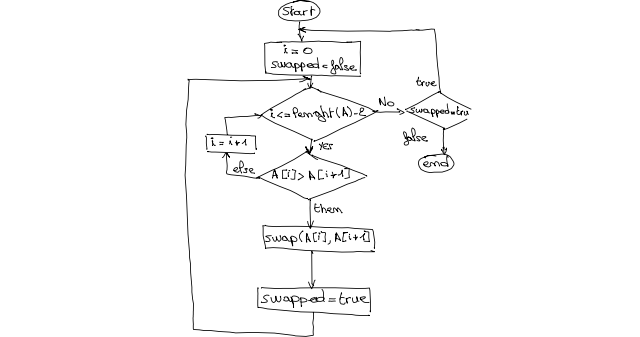 Start
i = 0
swapped = false
i <= lenght(A) - 2
No
swapped = tru
true
false
end
yes
i = i + 1
else
A[i] > A[i+1]
then
swap(A[i], A[i+1]
swapped = true